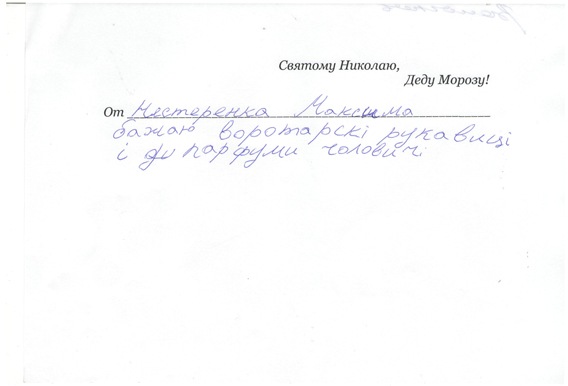 Святому Николаю,
Деду Морозу!
От Нестеренка Максима
бажаю воротарскі рукавиці
і парфуми чоловичі